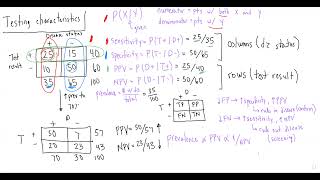 Testing characteristics
disease status
Test result
+ -
+ 25 15 40
- 10 50 60
35 65 100
P(X|Y)
given
numerator = pts w/ both X and Y
denominator = pts w/ Y
Sensitivity = P(T+|D+) = 25/35
Specificity = P(T-|D-) = 50/65
PPV = P(D+|T+) = 25/40
NPV = P(D-|T-) = 50/60
columns (dz status)
rows (test result)
prevalence = 35/100
D
+ -
T + TP FP
- FN TN
↓FP → ↑specificity, ↑PPV
↓FN → ↑sensitivity, ↑NPV
D
+ -
T + 50 7 57
- 20 23 43
70 30 100
PPV = 50/57 ↑
NPV = 23/43 ↓
Prevalence ∝ PPV ∝ 1/NPV